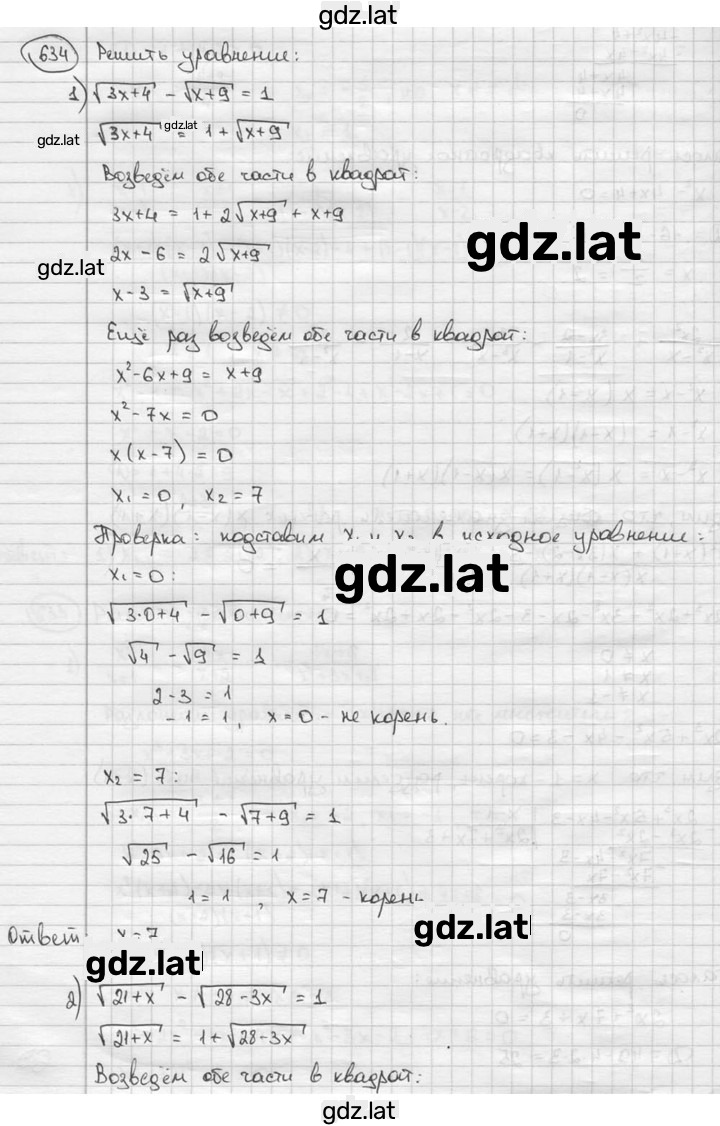 gdz.lat
634 Решить уравнение:
1) √3x+4 - √x+9 = 1
gdz.lat
gdz.lat √3x+4 = 1 + √x+9
Возведём обе части в квадрат:
3x+4 = 1 + 2√x+9 + x+9
gdz.lat
2x - 6 = 2√x+9
gdz.lat
x - 3 = √x+9
Ещё раз возведём обе части в квадрат:
x² - 6x + 9 = x+9
x² - 7x = 0
x(x - 7) = 0
x₁ = 0, x₂ = 7
Проверка: подставим x₁ и x₂ в исходное уравнение:
x₁ = 0:
gdz.lat
√3·0+4 - √0+9 = 1
√4 - √9 = 1
2 - 3 = 1
- 1 = 1, x = 0 - не корень.
x₂ = 7:
√3·7+4 - √7+9 = 1
√25 - √16 = 1
1 = 1, x = 7 - корень
gdz.lat
Ответ x = 7
gdz.lat
2) √21+x - √28-3x = 1
√21+x = 1 + √28-3x
Возведём обе части в квадрат:
gdz.lat